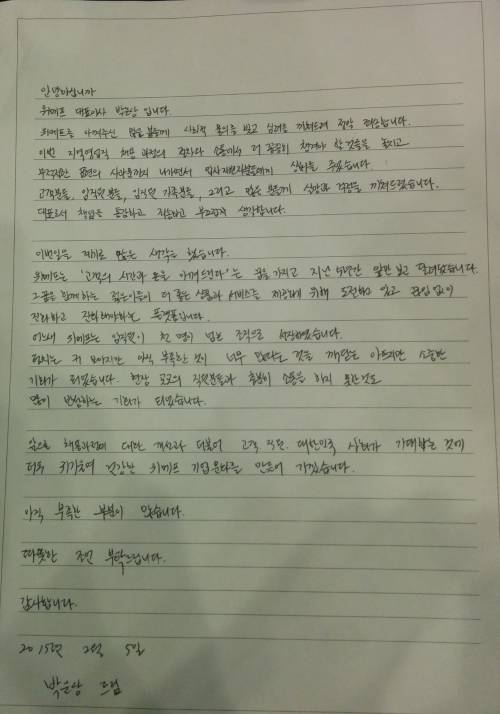 안녕하십니까
위메프 대표이사 박은상 입니다.
위메프를 아껴주신 많은 분들께 사회적 물의를 빚고 심려를 끼쳐드려 정말 죄송합니다.
이번 지역영업직 채용 과정의 절차나 소통에서 더 꼼꼼히 챙겨야 할 것들을 놓치고
부적절한 표현의 사과문까지 나가면서 입사지원자분들에게 상처를 주었습니다.
고객분들, 임직원분들, 임직원 가족분들, 그리고 많은 분들께 실망과 걱정을 끼쳐드렸습니다.
대표로서 책임을 통감하고 죄송하고 부끄럽게 생각합니다.
이번일을 계기로 많은 생각을 했습니다.
위메프는 '고객의 시간과 돈을 아껴드린다'는 꿈을 가지고 지난 5년간 앞만 보고 달려왔습니다.
그 꿈을 함께하는 젊은이들이 더 좋은 상품과 서비스를 제공하기 위해 도전하고 있고 끊임없이
진화하고 진화해야하는 플랫폼입니다.
어느새 위메프는 임직원이 천 명이 넘은 조직으로 성장하였습니다.
덩치는 커 보이지만 아직 부족한 것이 너무 많다는 것을 깨닫는 아프지만 소중한
기회가 되었습니다. 현장 곳곳의 직원분들과 충분히 소통을 하지 못한것도
많이 반성하는 기회가 되었습니다.
앞으로 채용과정에 대한 개선과 더불어 고객, 직원, 대한민국 사회가 기대하는 것에
더욱 귀기울여 건강한 위메프 기업문화를 만들어 가겠습니다.
아직 부족한 부분이 많습니다.
따뜻한 조언 부탁드립니다.
감사합니다.
2015년 2월 5일
박은상 드림